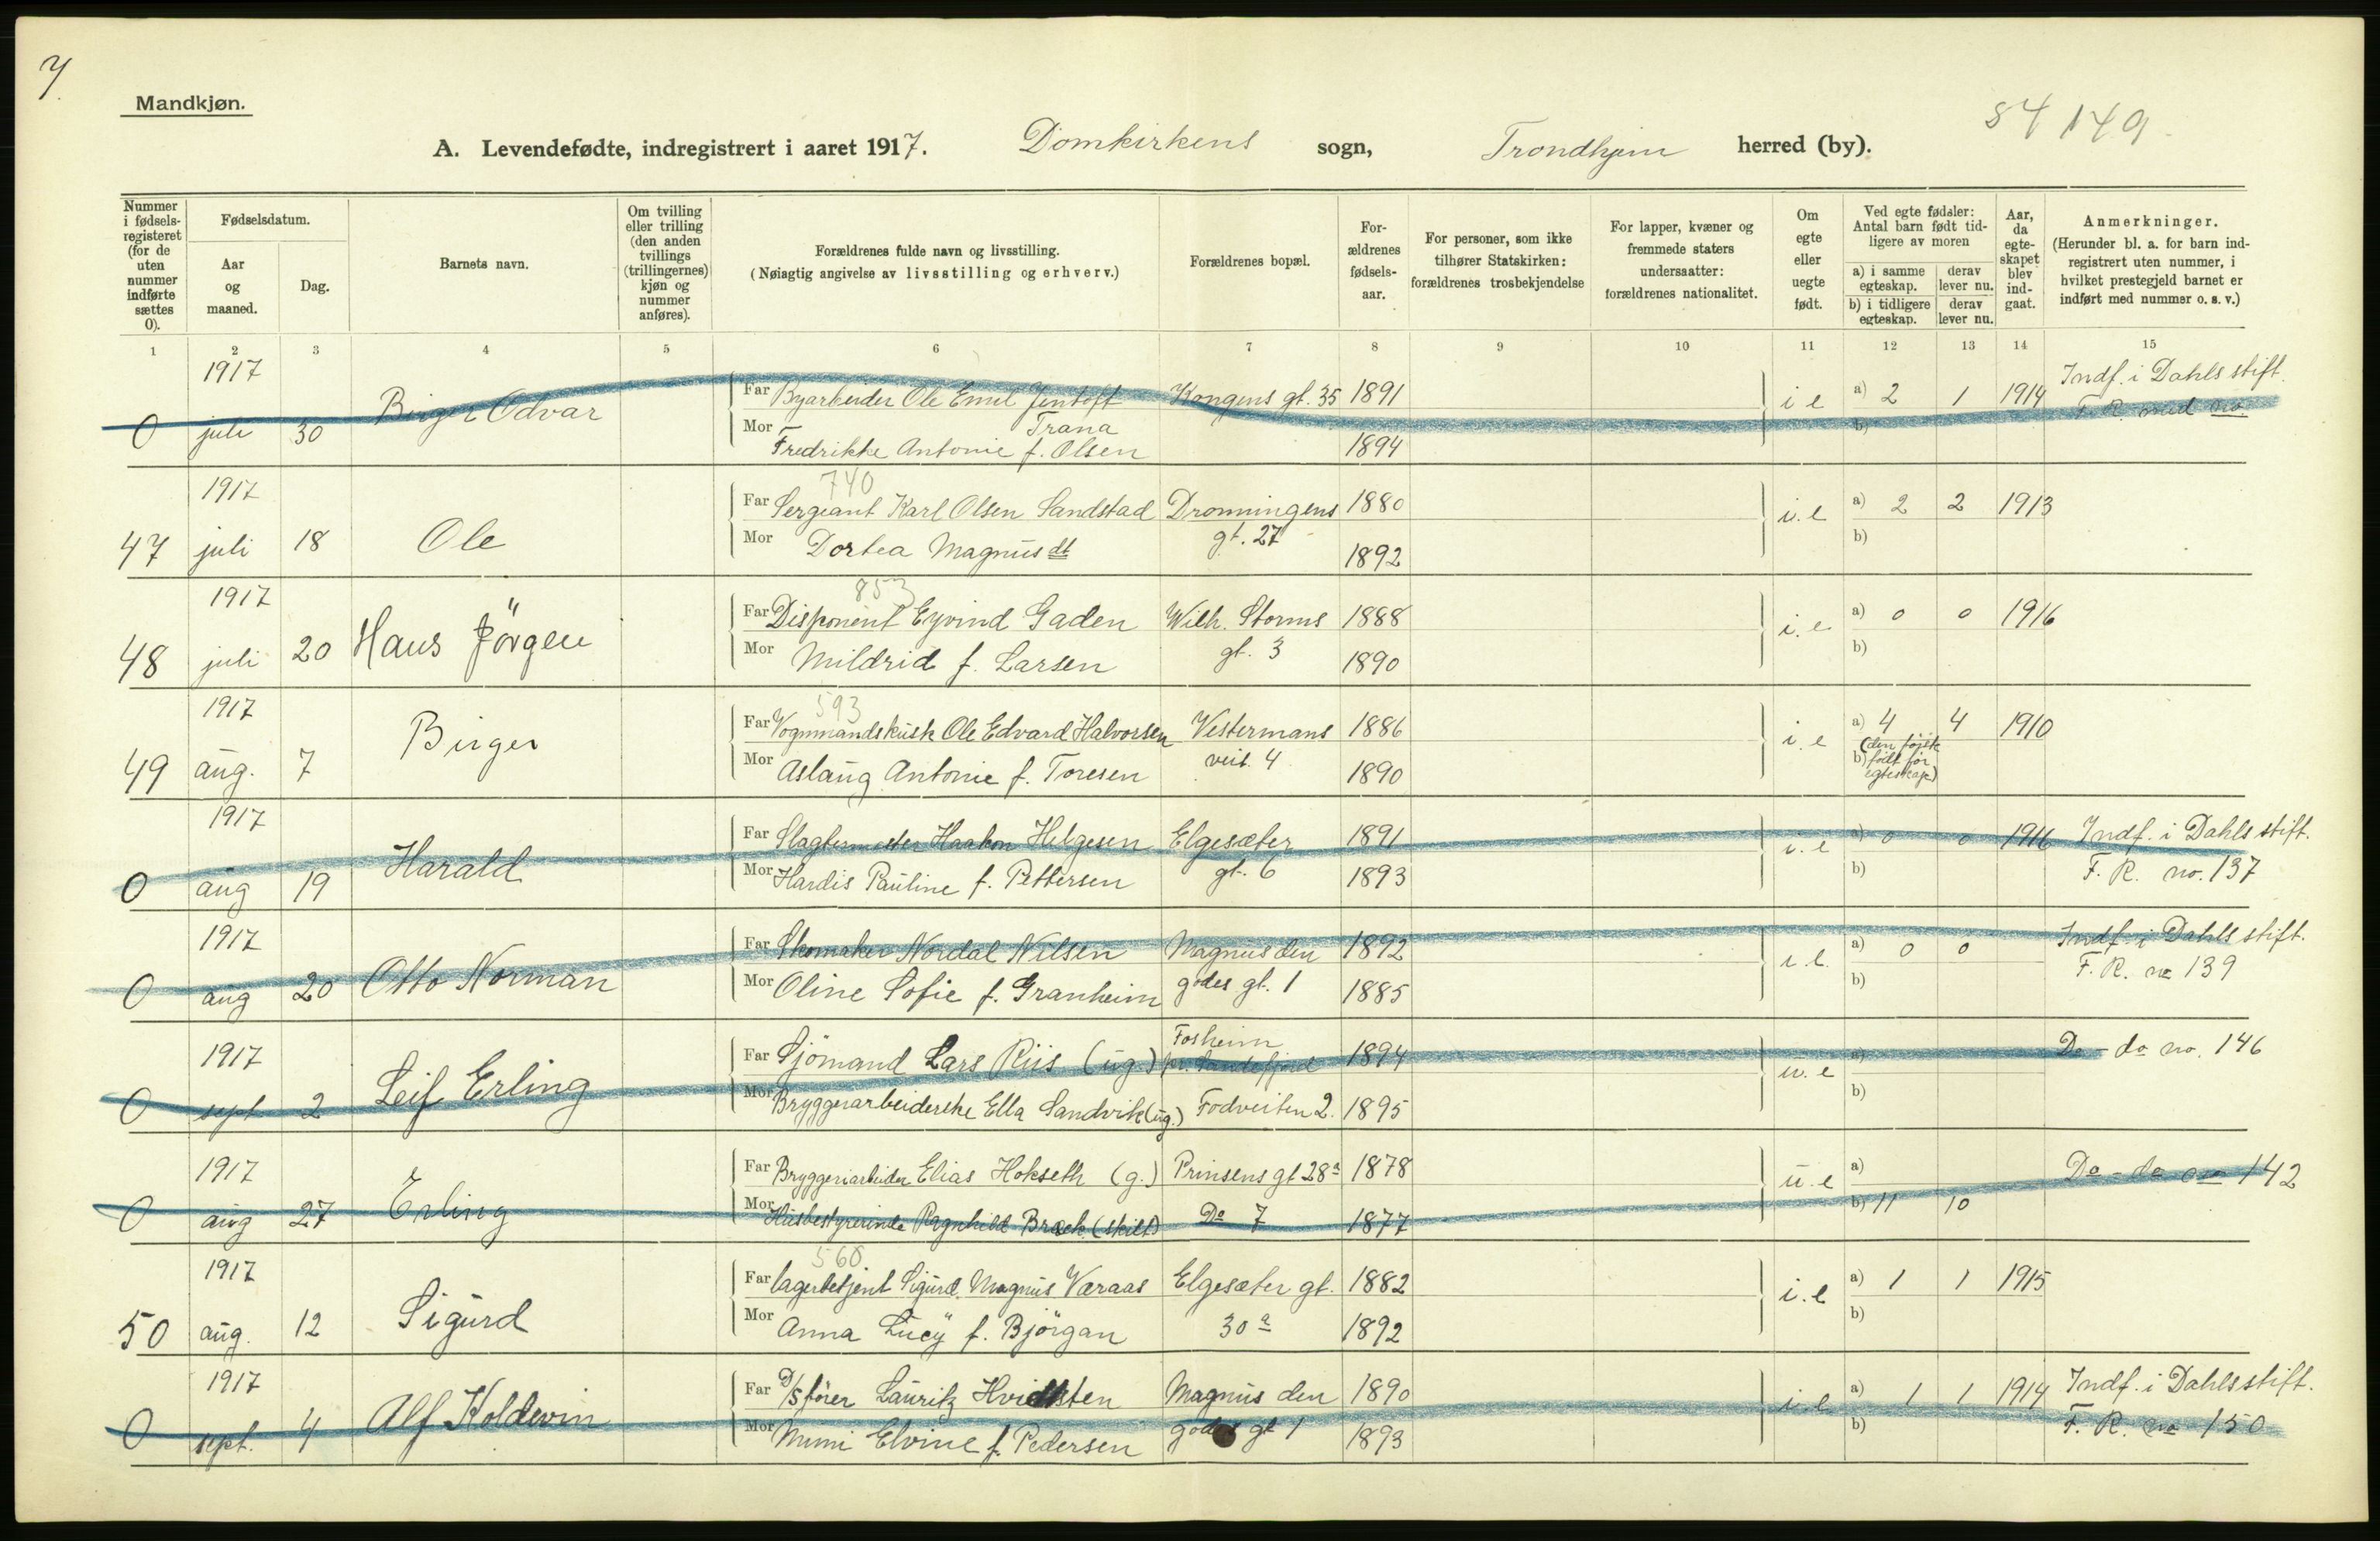 7
Mandkjøn.
84 149
A. Levendefødte, indregistrert i aaret 1917. Domkirkens sogn, Trondhjem herred (by).
Nummer i fødselsregisteret (for de uten nummer indførte sættes 0).
Fødselsdatum.
Aar og maaned.
Dag.
Barnets navn.
Om tvilling eller trilling (den anden tvillings (trillingernes) kjøn og nummer anføres).
Forældrenes fulde navn og livsstilling.
(Nøiagtig angivelse av livsstilling og erhverv.)
Forældrenes bopæl.
Forældrenes fødselsaar.
For personer, som ikke tilhører Statskirken: forældrenes trosbekjendelse
For lapper, kvæner og fremmede staters undersaatter: forældrenes nationalitet.
Om egte eller uegte født.
Ved egte fødsler: Antal barn født tidligere av moren
a) i samme egteskap.
derav lever nu.
b) i tidligere egteskap.
derav lever nu.
Aar, da egteskapet blev indgaat.
Anmerkninger.
(Herunder bl. a. for barn indregistrert uten nummer, i hvilket prestegjeld barnet er indført med nummer o. s. v.)
1 2 3 4 5 6 7 8 9 10 11 12 13 14 15
1917 Far Byarbeider Ole Emil Jentoft Kongens gt. 35 1891 i e a) 2 1 1914 Indf. i Dahls stift.
0 juli 30 Birger Odvar Trana b) F. R. med no.
Mor Fredrikke Antonie f. Olsen 1894
740
1917 Far Sergeant Karl Olsen Sandstad Dronningens 1880 i. e a) 2 2 1913
47 juli 18 Ole Mor Dortea Magnusdt gt. 27 1892 b)
853
1917 Far Disponent Eyvind Gaden Wilh. Storms 1888 i. e a) 0 0 1916
48 juli 20 Hans Jörgen Mor Mildrid f. Larsen gt. 3 1890 b)
593
1917 Far Vognmandskusk Ole Edvard Halvorsen Vestermans 1886 i. e a) 4 4 1910
49 aug. 7 Birger Mor Aslaug Antonie f. Toresen veit. 4 1890 b) (den förste födt för egteskap)
1917 Far Slagtermester Haakon Helgesen Elgesæter 1891 i. e a) 0 0 1916 Indf. i Dahls stift.
0 aug 19 Harald Mor Hardis Pauline f. Pettersen gt. 6 1893 b) F. R. no. 137
1917 Far Skomaker Nordal Nilsen Magnus den 1892 i. e. a) 0 0 Indf. i Dahls stift.
0 aug 20 Otto Norman Mor Oline Sofie f. Granheim godes gt. 1 1885 b) F. R. no 139
Fosheim
1917 Far Sjömand Lars Riis (ug.) pr. Sandefjord 1894 u. e a) Do - do no. 146
0 sept 2 Leif Erling Mor Bryggerarbeiderske Ella Sandvik (ug.) Fodveiten 2. 1895 b)
1917 Far Bryggeriarbeider Elias Hokseth (g.) Prinsens gt 28a 1878 u. e a) Do - do no 142
0 aug 27 Erling Mor Husbestyrerinde Ragnhild Bræck (skilt) Do 7 1877 b) 11 10
560
1917 Far Lagerbetjent Sigurd Magnus Væraas Elgesæter gt. 1882 i. e a) 1 1 1915
50 aug. 12 Sigurd Mor Anna Lucy f. Björgan 30a 1892 b)
1917 Far D/S förer Lauritz Hvidsten Magnus den 1890 i. e a) 1 1 1914 Indf. i Dahls stift.
0 sept. 4 Alf Koldevin Mor Mimi Elvine f. Pedersen godes gt 1 1893 b) F. R. no 150